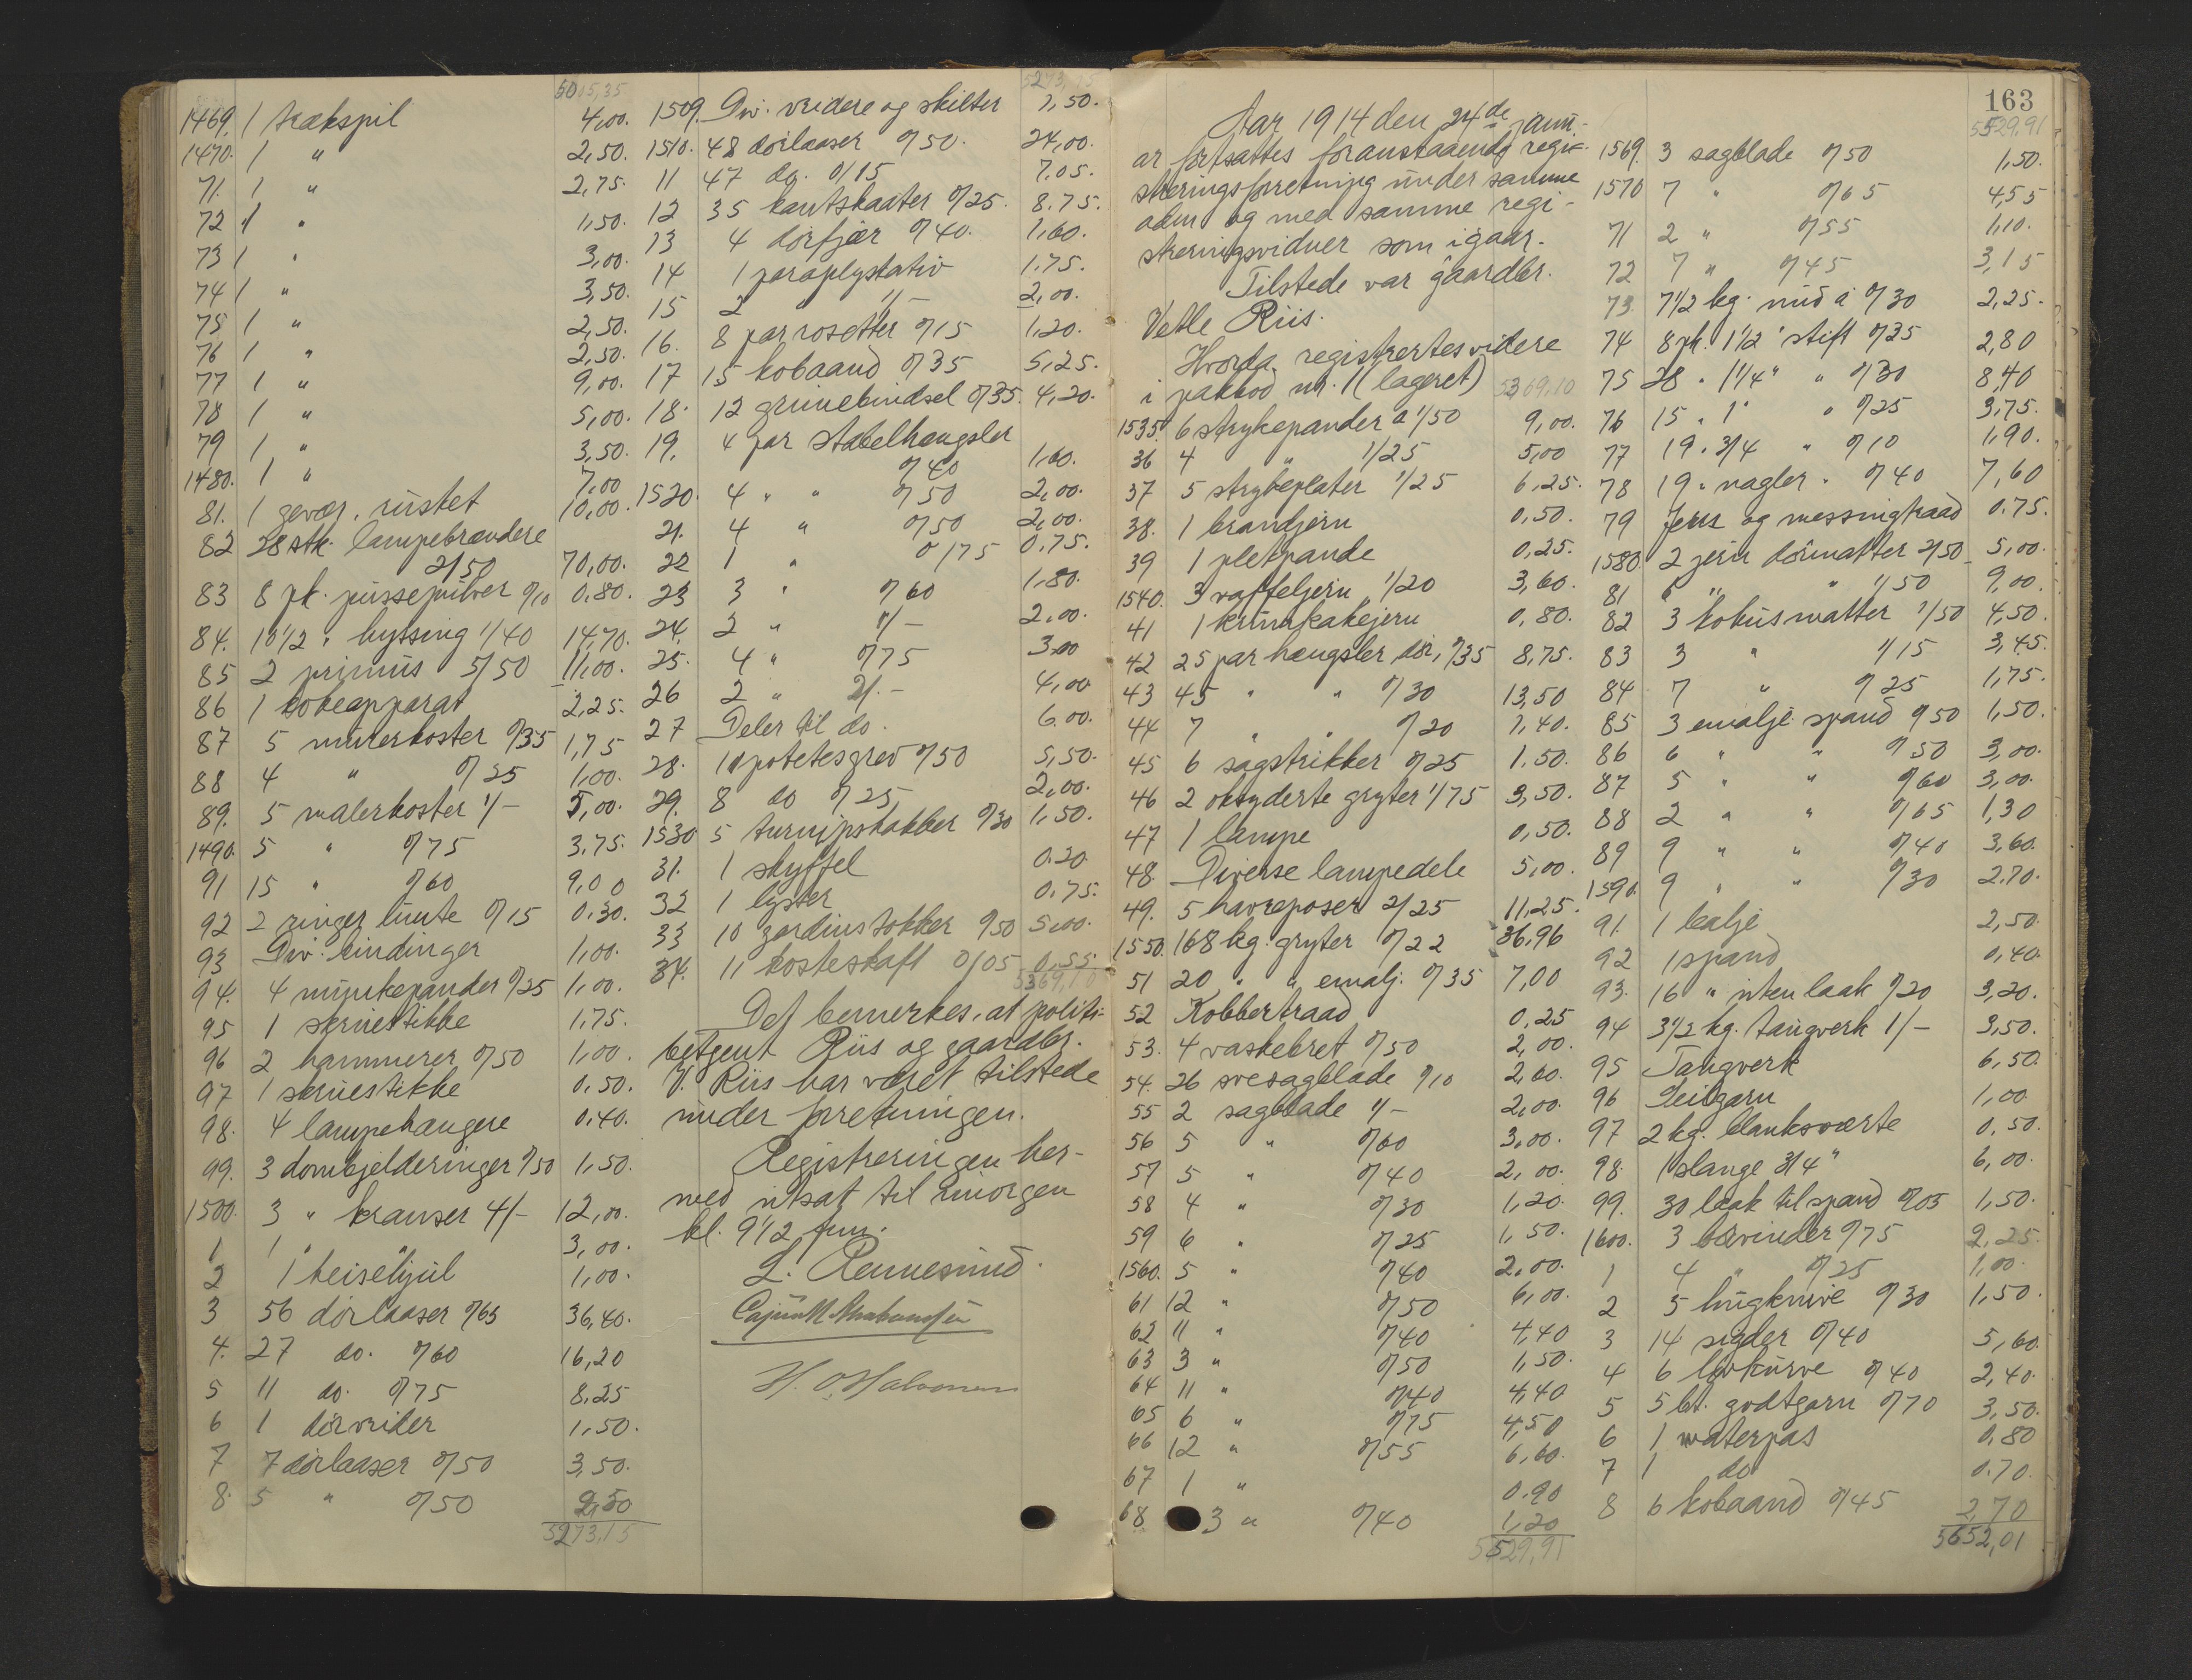 5015,35
1469. 1 trækspil 4,00.
1470. 1 " 2,50.
71. 1 " 2,75.
72 1 " 1,50.
73 1 " 3,00.
74 1 " 3,50.
75 1 " 2,50.
76 1 " 2,50.
77 1 " 9,00.
78 1 " 5,00.
79 1 " 3,50.
1480. 1 " 7,00
81. 1 gevær, rustet 10,00.
82 28 stk. lampebrændere
2/50 70,00.
83 8 pk. pussepulver 0/10 0,80.
84. 10 1/2 " hyssing 1/40 14,70.
85 2 primus 5/50 11,00.
86 1 kokeapparat 2,25.
87 5 murerkoster 0/35 1,75
88 4 " 0/25 1,00.
89. 5 malerkoster 1/- 5,00.
1490. 5 " 0/75 3,75.
91 15 " 0/60 9,00
92 2 ringer lunte 0/15 0,30.
93 Div. bindinger 1,00.
94. 4 munkepander 0/25 1,00.
95 1 skruestikke 1,75.
96 2 hammerer 0/50 1,00.
97 1 skruestikke 0,50.
98. 4 lampehængere 0,40.
99. 3 dombjelderinger 0/50 1,50.
1500. 3 " kranser 4/- 12,00.
1 1 " " 3,00.
2 1 heisehjul 1,00.
3 56 dørlaaser 0/65 36,40.
4. 27 do. 0/60 16,20
5 11 do. 0/75 8,25
6 1 dørvrider 1,50.
7 7 dørlaaser 0/50 3,50.
8. 5 " 0/50 2,50
5273,15
5273,15
1509. Div. vridere og skilter 1,50.
1510. 48 dørlaaser 0/50. 24,00.
11 47 do. 0/15 7,05.
12 35 kantskaater 0/25. 8.75.
13 4 dørfjær 0/40. 1,60.
14 1 paraplystativ 1.75.
15 2 " 1/- 2,00.
16. 8 par rosetter 0/15 1,20.
17 15 kobaand 0/35 5,25.
18. 12 grimebindsel 0/35. 4,20.
19. 4 par stabelhængsler
0/40 1,60.
1520. 4 " " 0/50 2,00.
21. 4 " 0/50 2,00.
22 1 " 0/75 0,75.
23 3 " 0/60 1,80.
24. 2 " 1/- 2,00.
25. 4 " 0/75 3,00
26 2 " 2/.- 4,00
27 Deler til do. 6,00.
28. 11 potetesgrev 0/50 5,50.
29. 8 do 0/25 2,00.
1530 5 turnipshakker 0/30 1,50.
31. 1 skyffel 0.20.
32 1 lyster 0.75.
33 10 gardinstokker 0/50 5,00.
34. 11 kosteskaft 0/05 0,55
5369,10
Det bemerkes, at politi-
betjent Riis og gaardbr.
V. Riis har været tilstede
under forretningen.
Registreringen her-
med utsat til imorgen
kl. 9 1/2 fm.
L. Rennesund.
H. O. Halvorsen
163
Aar 1914 den 24de janu-
ar fortsattes foranstaaende regi-
streringsforretning under samme
adm. og med samme regi-
streringsvidner som igaar.
Tilstede var gaardbr.
Vetle Riis.
Hvorda registrertes videre
i pakbod nr. 1 (lageret) 5369,10
1535. 6 strykepander à 1/50 9,00.
36 4 " 1/25 5,00
37 5 strykeplater 1/25 6,25.
38. 1 brandjern 0,50.
39 1 pletpande 0,25.
1540. 3 vaffeljern 1/20 3,60.
41 1 krumkakejern 0,80.
42 25 par hængsler, dør, 0/35 8,75.
43 45 " " 0/30 13,50
44 7 " " 0/20 1,40.
45 6 sagstrikker 0/25 1.50.
46 2 oksyderte gryter 1/75 3,50.
47 1 lampe 0,50.
48. Diverse lampedele 5,00.
49. 5 havreposer 2/25 11,25.
1550. 168 kg. gryter 0/22 36,96
51 20 " " emalj. 0/35 7,00
52 Kobbertraad 0,25
53. 4 vaskebret 0/50 2,00.
54. 26 svesagblade 0/10 2,60.
55 2 sagblade 1/- 2,00.
56 5 " 0/60 3,00.
57 5 " 0/40 2,00.
58 4 " 0/30 1,20.
59 6 " 0/25 1,50.
1560. 5 " 0/40 2,00.
61 12 " 0/50 6,00.
62 11 " 0/40 4,40
63 3 " 0/50 1,50.
64 11 " 0/40 4,40
65 6 " 0/75 4,50
66 12 " 0/55 6,60.
67 1 " 0.90
68 3 " 0/40 1,20
5529,91
5529,91
1569. 3 sagblade 0/50 1,50.
1570 7 " 0/65 4,55
71 2 " 0/55 1,10.
72 7 " 0/45 3,15
73. 7 1/2 kg. nud à 0/30 2,25.
74 8 pk. 1 1/2" stift 0/35 2,80
75 28 " 1 1/4" " 0/30 8,40
76 15 " 1" " 0/25 3,75.
77 19 " 3/4 " 0/10 1,90.
78 19 " nagler " 0/40 7,60
79 Jern og messingtraad 0.75.
1580. 2 jern dørmatter 2/50 5,00.
81 6 " " 1/50 9,00.
82 3 kokusmatter 1/50 4,50.
83 3 " 1/15 3,45.
84 7 " 0/25 1,75.
85 3 emalje spand 0/50 1,50.
86 6 " " 0/50 3,00.
87 5 " " 0/60 3,00.
88 2 " " 0/65 1,30
89 9 " " 0/40 3,60.
1590. 9 " " 0/30 2.70.
91. 1 balje 2,50.
92 1 spand 0,40.
93. 16 " uten laak 0/20 3,20.
94 3 1/2 kg. taugverk 1/- 3,50.
95 Taugverk 6,50.
96 Seilgarn 1,00.
97 2 kg. blanksværte 0,50.
98. 1 slange 3/4" 6,00.
99. 30 laak til spand 0/05 1,50.
1600. 3 borvinder 0/75 2,25.
1 4 " 0/25 1,00.
2 5 hugknive 0/30 1,50.
3 14 sigder 0/40 5,60.
4 6 løvkurve 0/40 2,40.
5 5 bt. godtgarn 0/70 3,50.
6 1 waterpas 0,80
7 1 do 0.70.
8 6 kobaand 0/45 2,70
5652,01